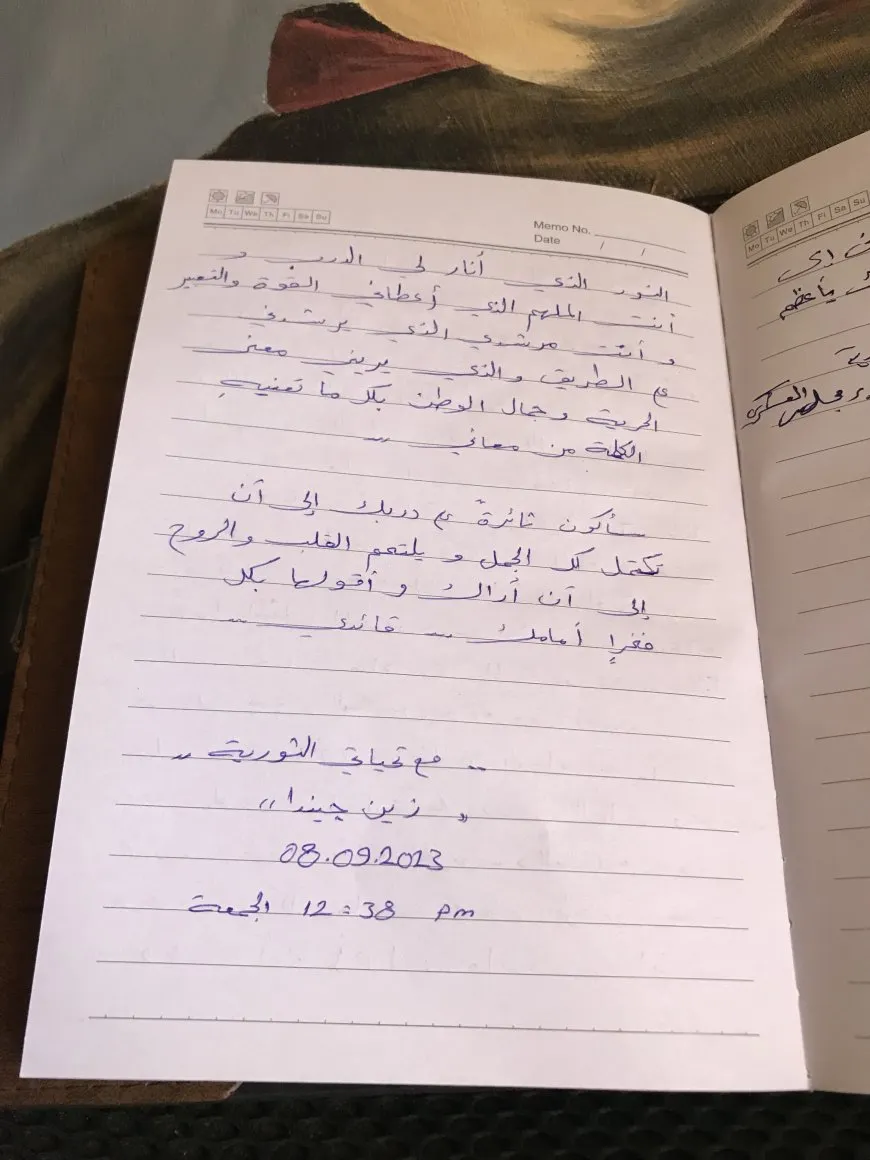 Mo Tu We Th Fi Sa Su
Memo No.
Date / /
النور الذي أنار لي الدرب و
أنت الملهم الذي أعطاني القوة والتعبير
و أنت مرشدي الذي يرشدني
في الطريق والذي يريني معنى
الحرية و جمال الوطن بكل ما تعنيه
الكلمة من معاني ,,
سأكون ثائرةً في دربك إلى أن
تكتمل لك الجمل و يلتحم القلب والروح
إلى أن أراك و أقولها بكل
فخراٍ أمامك ,, قائدي ,,
,, مع تحياتي الثورية ,,
" زين چيندا "
08.09.2023
الجمعة 12:38 pm
Mo Tu We Th Fi Sa Su
يأعظم
العسكري